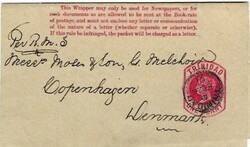 This Wrapper may only be used for Newspapers, or for
such documents as are allowed to be sent at the Book-rate
of postage, and must not enclose any letter or communication
of the nature of a letter (whether separate or otherwise).
If this rule be infringed, the packet will be charged as a letter.
Per R.M.S
Messrs Moses & Son, G. Melchior
Copenhagen
Denmark
TRINIDAD